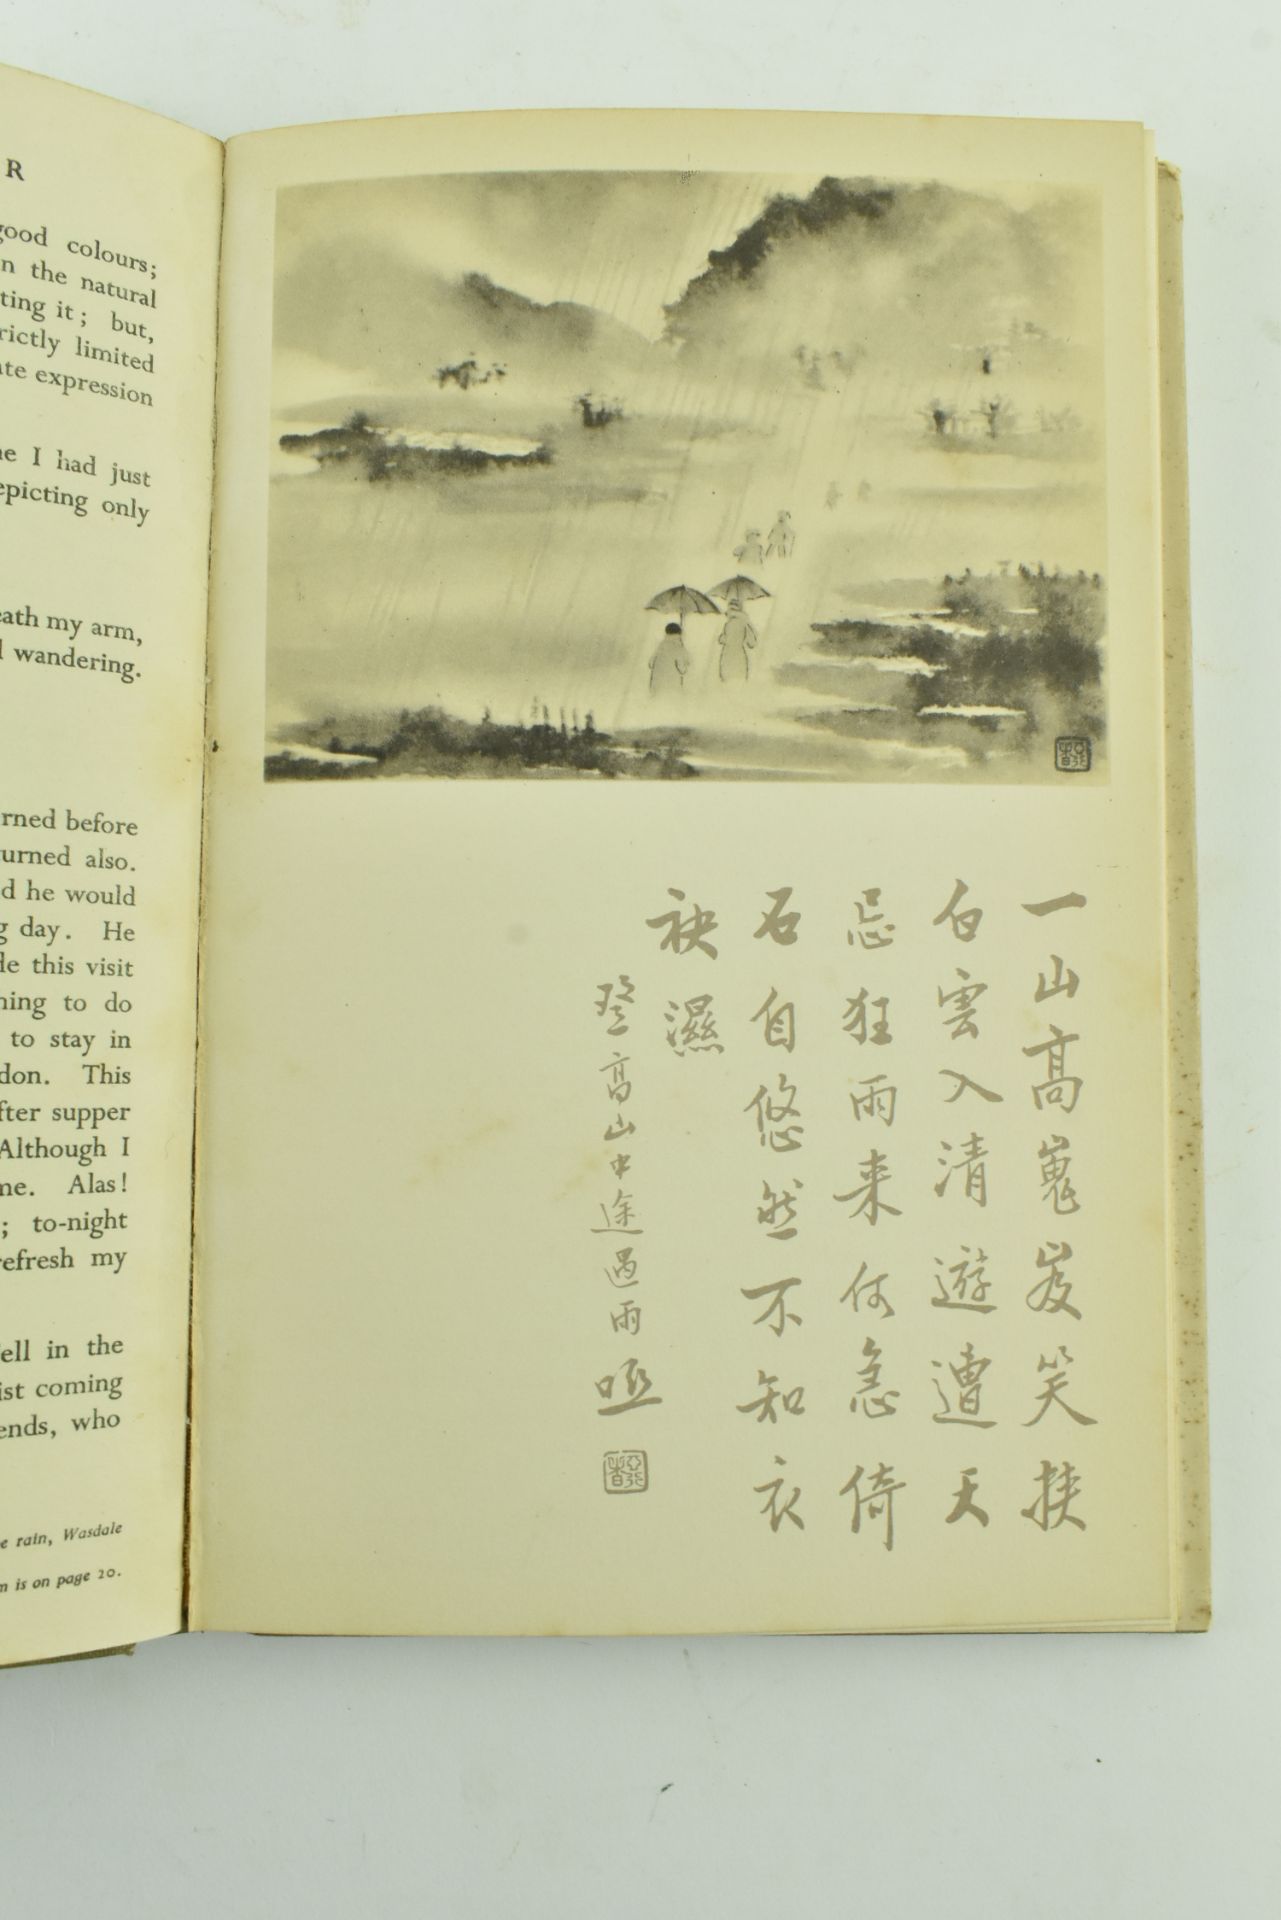 R
good colours;
n the natural
ting it; but,
rictly limited
ate expression
ne I had just
epicting only
eath my arm,
wandering.
rned before
turned also.
d he would
g day. He
de this visit
hing to do
to stay in
don. This
fter supper
Although I
me. Alas!
; to-night
refresh my
ell in the
ist coming
ends, who
e rain, Wasdale
m is on page 20.
一山高嵬岌笑挾
白雲入清遊遭天
忌狂雨来何急倚
石自悠然不知衣
袂濕
登高山中途遇雨 啞